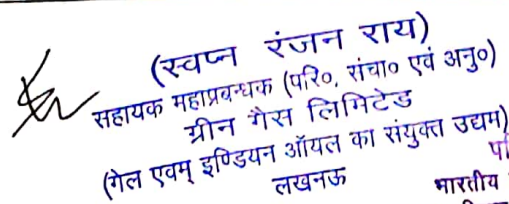 (स्वप्न रंजन राय)
सहायक महाप्रबन्धक (परि०, संचा० एवं अनु०)
ग्रीन गैस लिमिटेड
(गेल एवम् इण्डियन ऑयल का संयुक्त उद्यम)
लखनऊ
भारतीय